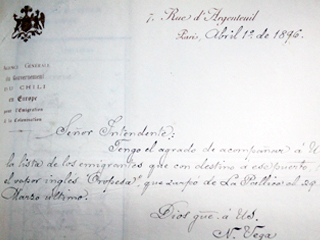 7, Rue d'Argenteuil
Paris, Abril 1º de 1896.
AGENCE GÉNÉRALE
du Gouvernement
DU CHILI
en Europe
pour l'Émigration
& la Colonisation
Señor Intendente:
Tengo el agrado de acompañar á U
la lista de los emigrantes que con destino á ese puerto
el vapor inglés "Oropesa", que zarpó de La Pallice el 29
Marzo último.
Dios gue. á US.
N. Vega